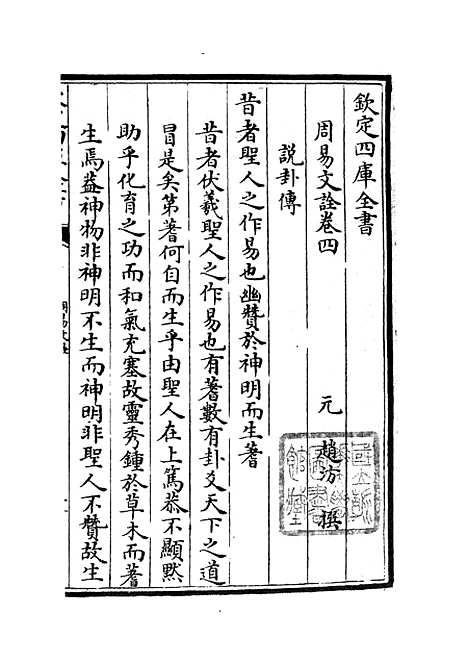 欽定四庫全書
周易文詮卷四
元 趙汸 撰
說卦傳
昔者聖人之作易也幽贊於神明而生蓍
昔者伏羲聖人之作易也有蓍數有卦爻天下之道
冒是矣第蓍何自而生乎由聖人在上篤恭不顯黙
助乎化育之功而和氣充塞故靈秀鍾於草木而蓍
生焉蓋神物非神明不生而神明非聖人不贊故生